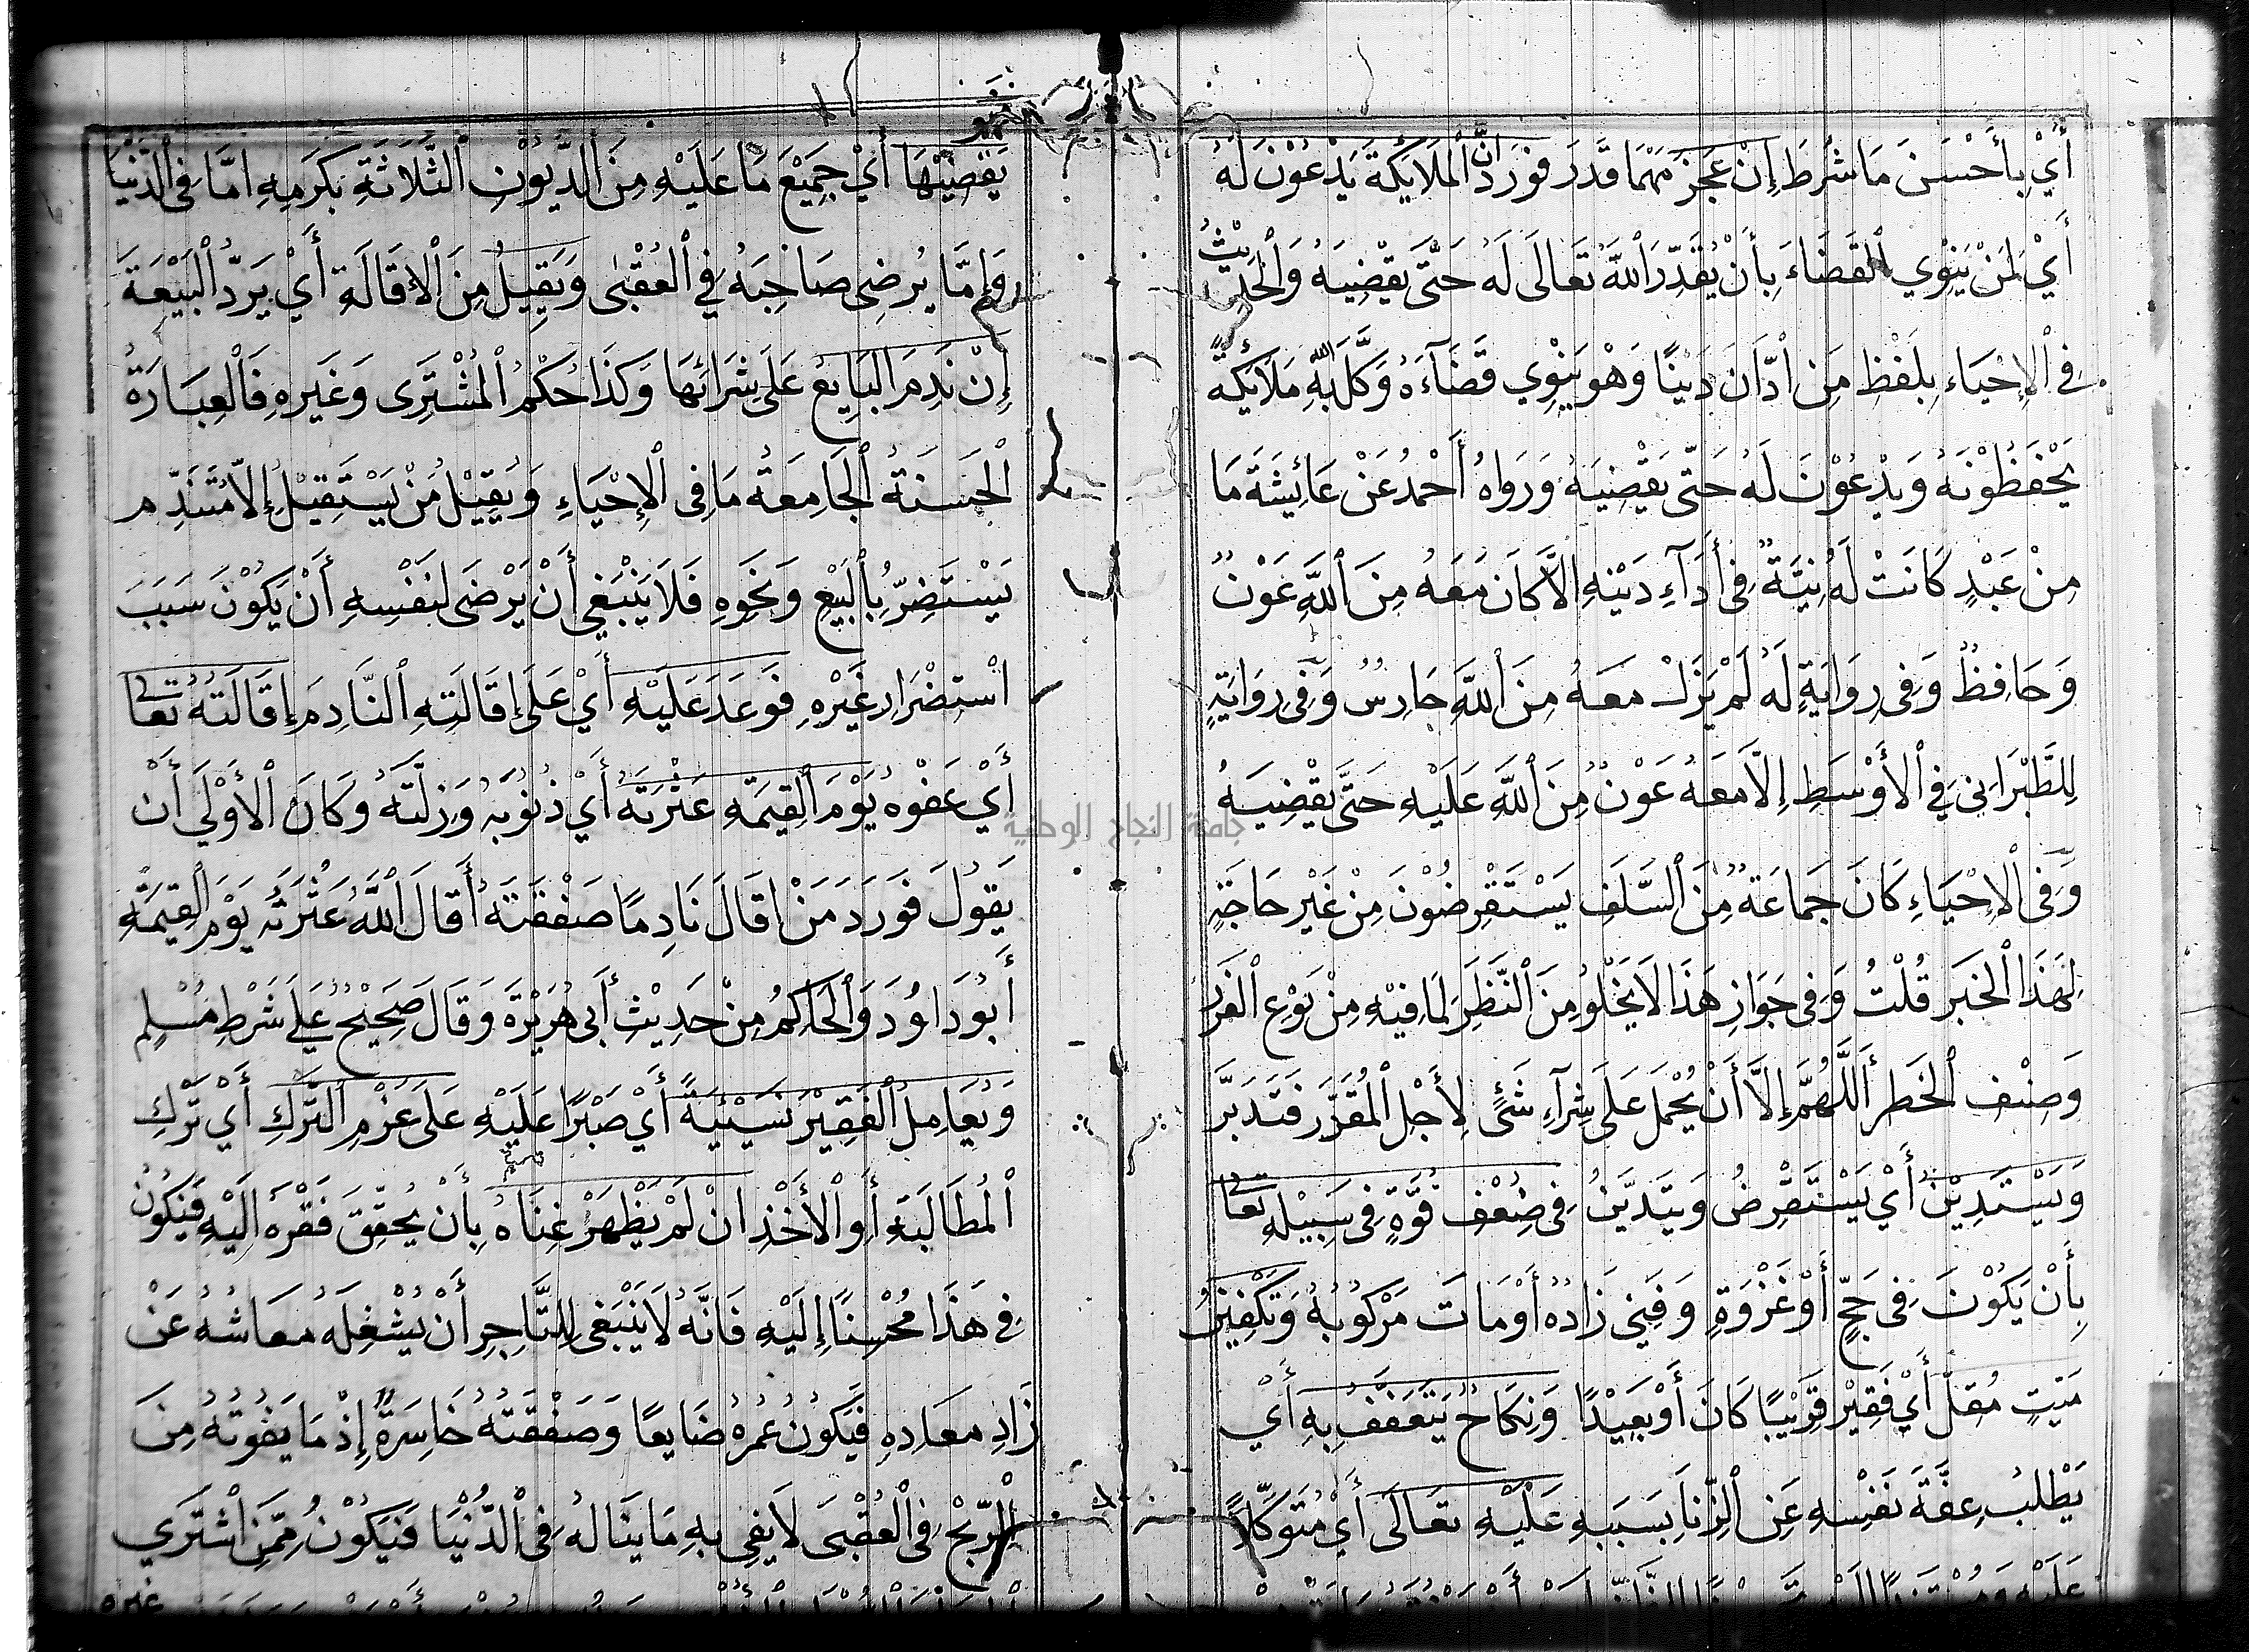 أَيْ بِأَحْسَنَ مَا شُرِطَ إِنْ عَجَزَ مَهْمَا قَدَرَ فَوَرَدَ انَّ الْمَلَائِكَةَ يَدْعُوْنَ لَهُ
أَيْ لِمَنْ يَنْوِي الْقَضَاءَ بِأَنْ يُقَدِّرَ اللّٰهُ تَعَالَى لَهُ حَتَّى يَقْضِيَهُ وَالْحَدِيْثُ
فِي الْإِحْيَاءِ بِلَفْظِ مَنِ ادَّانَ دَيْنًا وَهُوَ يَنْوِي قَضَآءَهُ وَكَّلَ اللّٰهُ بِهِ مَلَائِكَةً
يَحْفَظُوْنَهُ وَيَدْعُوْنَ لَهُ حَتَّى يَقْضِيَهُ وَرَوَاهُ أَحْمَدُ عَنْ عَائِشَةَ مَا
مِنْ عَبْدٍ كَانَتْ لَهُ نِيَّةٌ فِي أَدَآءِ دَيْنِهِ الَّا كَانَ مَعَهُ مِنَ اللّٰهِ عَوْنٌ
وَحَافِظٌ وَفِي رِوَايَةٍ لَهُ لَمْ يَزَلْ مَعَهُ مِنَ اللّٰهِ حَارِسٌ وَفِي رِوَايَةٍ
لِلطَّبْرَانِي فِي الْأَوْسَطِ إِلَّا مَعَهُ عَوْنٌ مِنَ اللّٰهِ عَلَيْهِ حَتَّى يَقْضِيَهُ
وَفِي الْإِحْيَاءِ كَانَ جَمَاعَةٌ مِنَ السَّلَفِ يَسْتَقْرِضُوْنَ مِنْ غَيْرِ حَاجَةٍ
لِهَذَا الْخَبَرِ قُلْتُ وَفِي جَوَازِ هَذَا لَا يَخْلُو مِنَ النَّظَرِ لِمَا فِيْهِ مِنْ نَوْعِ الْغَرَرِ
وَصِنْفِ الْخَطَرِ أَللَّهُمَّ إِلَّا أَنْ يُحْمَلَ عَلَى شِرَآءِ شَئٍ لِأَجْلِ الْمُقَرَّرِ فَتَدَبَّرَ
وَيَسْتَدِيْنُ أَيْ يَسْتَقْرِضُ وَيَتَدَيَّنُ فِي ضُعْفِ قُوَّةٍ فِي سَبِيْلِهِ تَعَالَى
بِأَنْ يَكُوْنَ فِي حَجٍّ أَوْ غَزْوَةٍ وَفَنِيَ زَادُهُ أَوْ مَاتَ مَرْكُوْبُهُ وَتَكْفِيْنِ
مَيِّتٍ مُقِلٍّ أَيْ فَقِيْرٍ قَرِيْبًا كَانَ أَوْ بَعِيْدًا وَنِكَاحٌ يَتَعَفَّفُ بِهِ أَيْ
يَطْلُبُ عِفَّةَ نَفْسِهِ عَنِ الزِّنَا بِسَبَبِهِ عَلَيْهِ تَعَالَى أَيْ مُتَوَكِّلًا
يَقْضِيْهَا أَيْ جَمِيْعَ مَا عَلَيْهِ مِنَ الدُّيُوْنِ الثَّلَاثَةِ بِكَرَمِهِ امَّا فِي الدُّنْيَا
وَإِمَّا يُرْضِي صَاحِبَهُ فِي الْعُقْبَى وَيُقِيْلُ مِنَ الْأَقَالَةِ أَيْ يَرُدُّ الْبَيْعَةَ
إِنْ نَدِمَ الْبَايِعُ عَلَى شِرَائِهَا وَكَذَا حُكْمُ الْمُشْتَرِى وَغَيْرِهِ فَالْعِبَارَةُ
الْحَسَنَةُ الْجَامِعَةُ مَا فِي الْإِحْيَاءِ وَيُقِيْلُ مَنْ يَسْتَقِيْلُ إِلَّا مُتَنَدِّم
يَسْتَضِرُّ بِالْبَيْعِ وَنَحْوِهِ فَلَا يَنْبَغِي أَنْ يَرْضَى لِنَفْسِهِ أَنْ يَكُوْنَ سَبَبَ
اسْتِضْرَارِ غَيْرِهِ فَوَعَدَ عَلَيْهِ أَيْ عَلَى إِقَالَتِهِ النَّادِمَ إِقَالَتَهُ تَعَالَى
أَيْ عَفْوُهُ يَوْمَ الْقِيمَةِ عَثْرَتَهُ أَيْ ذُنُوْبَهُ وَزَلَّتَهُ وَكَانَ الْأَوْلَى أَنْ
يَقُوْلَ فَوَرَدَ مَنْ اقَالَ نَادِمًا صَفْقَتَهُ أَقَالَ اللّٰهُ عَثْرَتَهُ يَوْمَ الْقِيمَةِ
أَبُوْ دَاوُدَ وَالْحَاكِمُ مِنْ حَدِيْثِ أَبِي هُرَيْرَةَ وَقَالَ صَحِيْحٌ عَلَى شَرْطِ مُسْلِمٍ
وَيُعَامِلُ الْفَقِيْرَ نَسِيْئَةً أَيْ صَبْرًا عَلَيْهِ عَلَى عَزْمِ التَّرْكِ أَيْ تَرْكِ
الْمُطَالَبَةِ أَوِ الْأَخْذِ انْ لَمْ يَظْهَرْ غِنَاهُ بِأَنْ يُحَقِّقَ فَقْرَهُ الَيْهِ فَيَكُوْنُ
فِي هَذَا مُحْسِنًا إِلَيْهِ فَانَّهُ لَا يَنْبَغِي لِلتَّاجِرِ أَنْ يُشْغِلَهُ مَعَاشُهُ عَنْ
زَادِ مَعَادِهِ فَيَكُوْنُ عُمْرُهُ ضَايِعًا وَصَفْقَتُهُ خَاسِرَةً إِذْ مَا يَفُوْتُهُ مِنَ
الرِّبْحِ فِي الْعُقْبَى لَا يَفِي بِهِ مَا يَنَالُهُ فِي الدُّنْيَا فَيَكُوْنُ مِمَّنِ اشْتَرَي
غيره
جامعة النجاح الوطنية